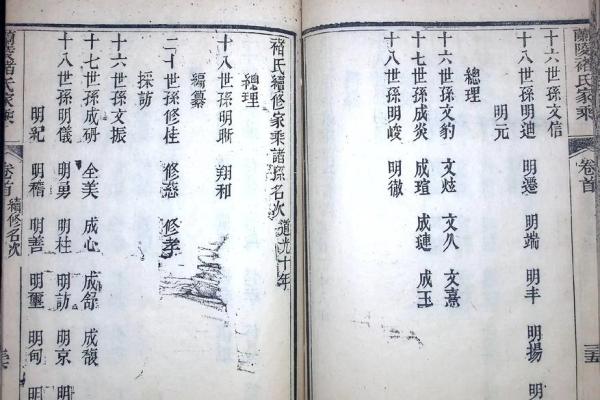 蘭陵褚氏家乘
卷首
三五
十六世孫文信
十八世孫明迪 明邊 明端 明丰 明揚 明
明元
總理
十六世孫文豹 文炫 文久 文熹
十七世孫成炎 成瑄 成璉 成玉
十八世孫明峻 明徹
褚氏續修家乘諸孫名次 道光十年
總理
十八世孫明晰 翔和
編纂
二十世孫修佳 修慈 修孝
採訪
十六世孫文振
十七世孫成硏 全美 成心 成舒 成馥
十八世孫明儀 明勇 明柱 明訪 明京 明
明紀 明稽 明善 明璽 明甸 明
蘭陵褚氏家乘
卷首 續修名次